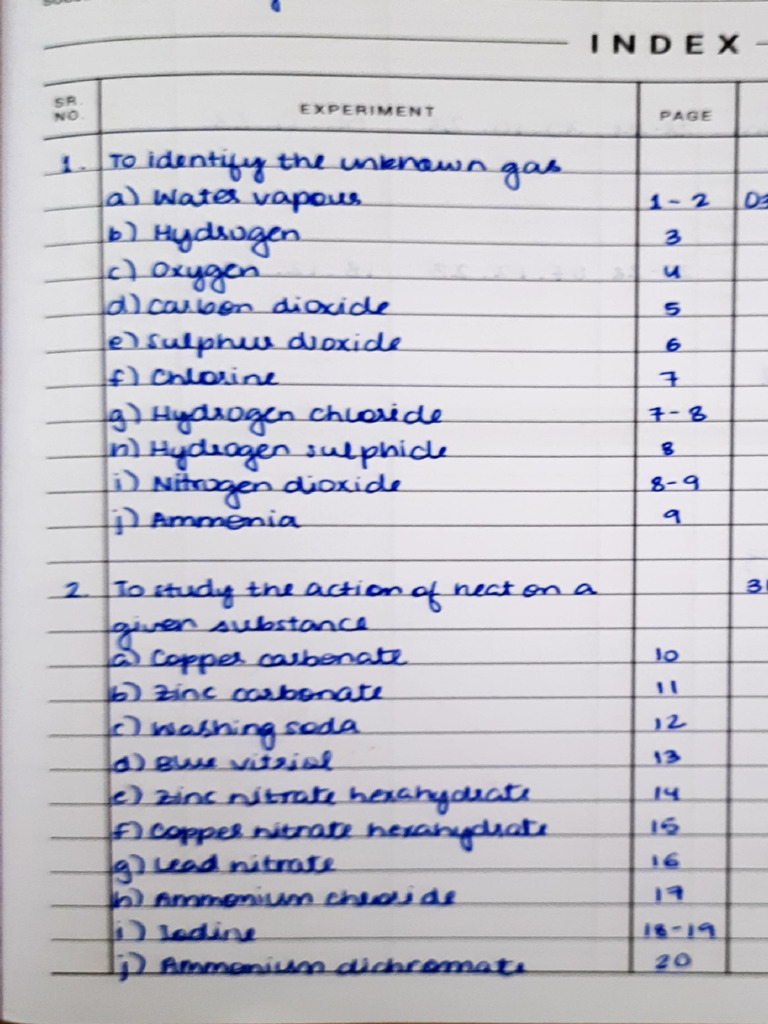 INDEX
SR. NO. EXPERIMENT PAGE
1. To identify the unknown gas
a) Water vapour 1-2 03
b) Hydrogen 3
c) Oxygen 4
d) Carbon dioxide 5
e) Sulphur dioxide 6
f) Chlorine 7
g) Hydrogen chloride 7-8
h) Hydrogen sulphide 8
i) Nitrogen dioxide 8-9
j) Ammonia 9
2. To study the action of heat on a 31
given substance
a) Copper carbonate 10
b) Zinc carbonate 11
c) Washing soda 12
d) Blue vitriol 13
e) Zinc nitrate hexahydrate 14
f) Copper nitrate hexahydrate 15
g) Lead nitrate 16
h) Ammonium chloride 17
i) Iodine 18-19
j) Ammonium dichromate 20